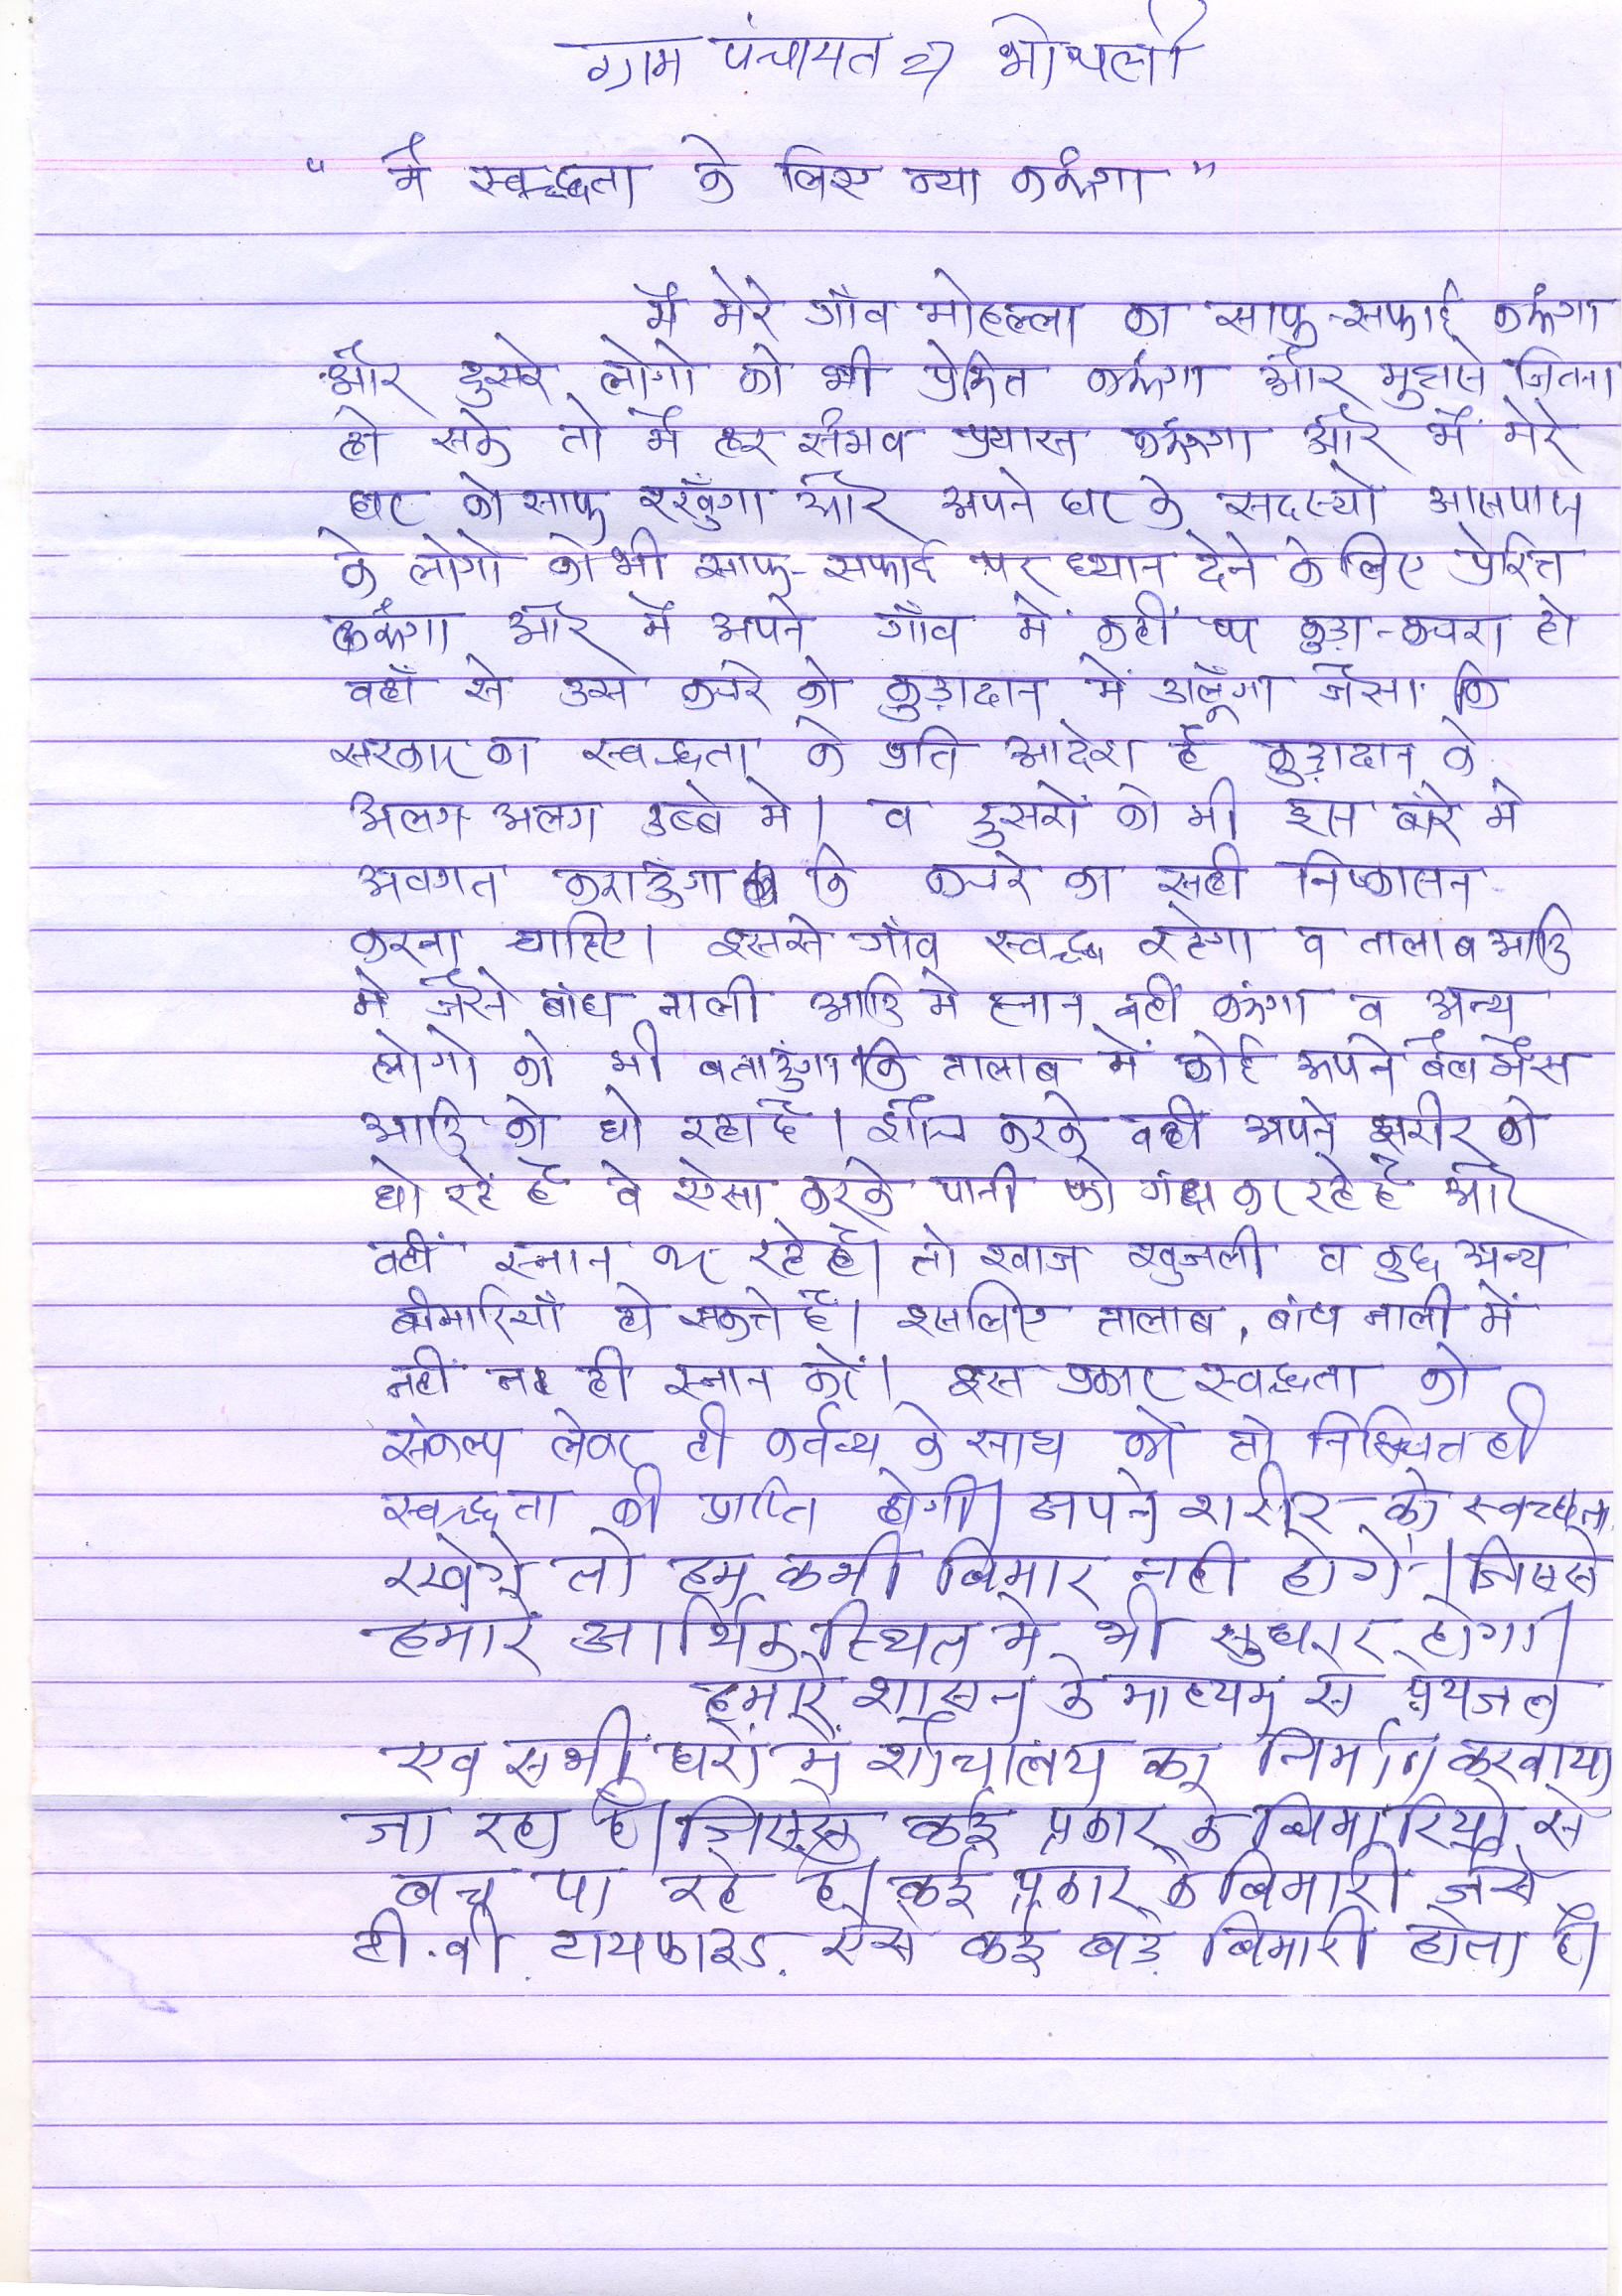 ग्राम पंचायत भोथली
" मैं स्वच्छता के लिए क्या करूंगा "
मैं मेरे गाँव मोहल्ला का साफ-सफाई करूंगा
और दुसरे लोगो को भी प्रेरित करूंगा और मुझसे जितना
हो सके तो मैं हर संभव प्रयास करूंगा और मैं मेरे
घर को साफ रखुँगा और अपने घर के सदस्यो आसपास
के लोगो को भी साफ-सफाई पर ध्यान देने के लिए प्रेरित
करूंगा और मैं अपने गाँव में कहीं पर कुड़ा-कचरा हो
वहाँ से उस कचरे को कुड़ादान में डालूँगा जैसा कि
सरकार का स्वच्छता के प्रति आदेश है कुड़ादान के
अलग-अलग डब्बे मे। व दुसरों को भी इस बारे मे
अवगत कराउंगा कि कचरे का सही निष्कासन
करना चाहिए। इससे गाँव स्वच्छ रहेगा व तालाब आदि
मे जैसे बांध नाली आदि मे स्नान नहीं करूंगा व अन्य
लोगो को भी बताउंगा कि तालाब में कोई अपने बैल भैंस
आदि को धो रहा है। शौच करके वही अपने शरीर को
धो रहें है वे ऐसा करके पानी को गंदा कर रहे है और
वहीं स्नान कर रहे है। तो खाज खुजली व कुछ अन्य
बीमारियाँ हो सकते है। इसलिए तालाब, बांध नाली में
नहीं ना ही स्नान करें। इस प्रकार स्वच्छता को
संकल्प लेकर ही कर्तव्य के साथ करें तो निश्चित ही
स्वच्छता की प्राप्ति होगी। अपने शरीर को स्वच्छता
रखेगे तो हम कभी बिमार नही होगें। जिससे
हमारे आर्थिक स्थित मे भी सुधार होगा।
हमारे शासन के माध्यम से पेयजल
एव सभी घरो में शौचालय का निर्माण करवाया
जा रहा है। जिससे कई प्रकार के बिमारियो से
बच पा रहे है। कई प्रकार के बिमारी जैसे
टी.बी. टायफाइड. ऐसे कई बड़े बिमारी होता है।